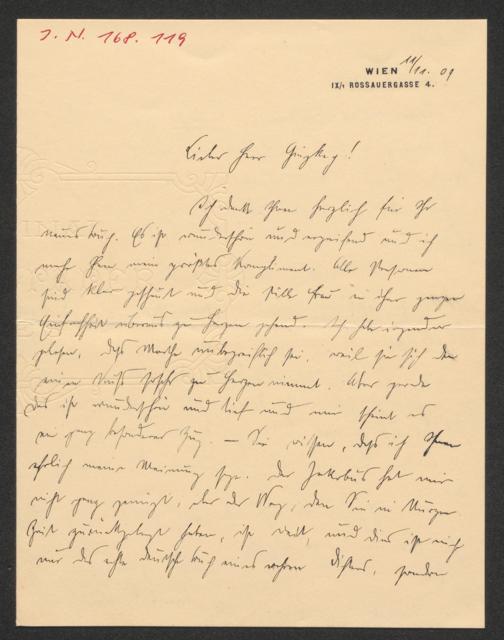 J. N. 168.119
WIEN 11/11. 09
IX/1 ROSSAUERGASSE 4.
Lieber Herr Ginzkey!
Ich danke Ihnen herzlich für Ihr
neues Buch. Es ist wunderschön und ergreifend und ich
mache Ihnen mein größtes Kompliment. Alle Personen
sind klar geschaut und die stille Frau in ihrer ganzen
Einfachheit überaus zu Herzen gehend. Ich habe irgendwo
gelesen, daß Martha unbegreiflich sei, weil sie sich den
einen Kuß so sehr zu Herzen nimmt. Aber gerade
das ist wunderschön und tief und mir scheint es
ein ganz besonderer Zug. — Sie wissen, daß ich Ihnen
ehrlich meine Meinung sage. Der Jakobus hat mir
nicht ganz genügt, aber der Weg, den Sie in kurzer
Zeit zurückgelegt haben, ist weit, und dies ist nicht
nur das echte deutsche Buch eines wahren Dichters, sondern